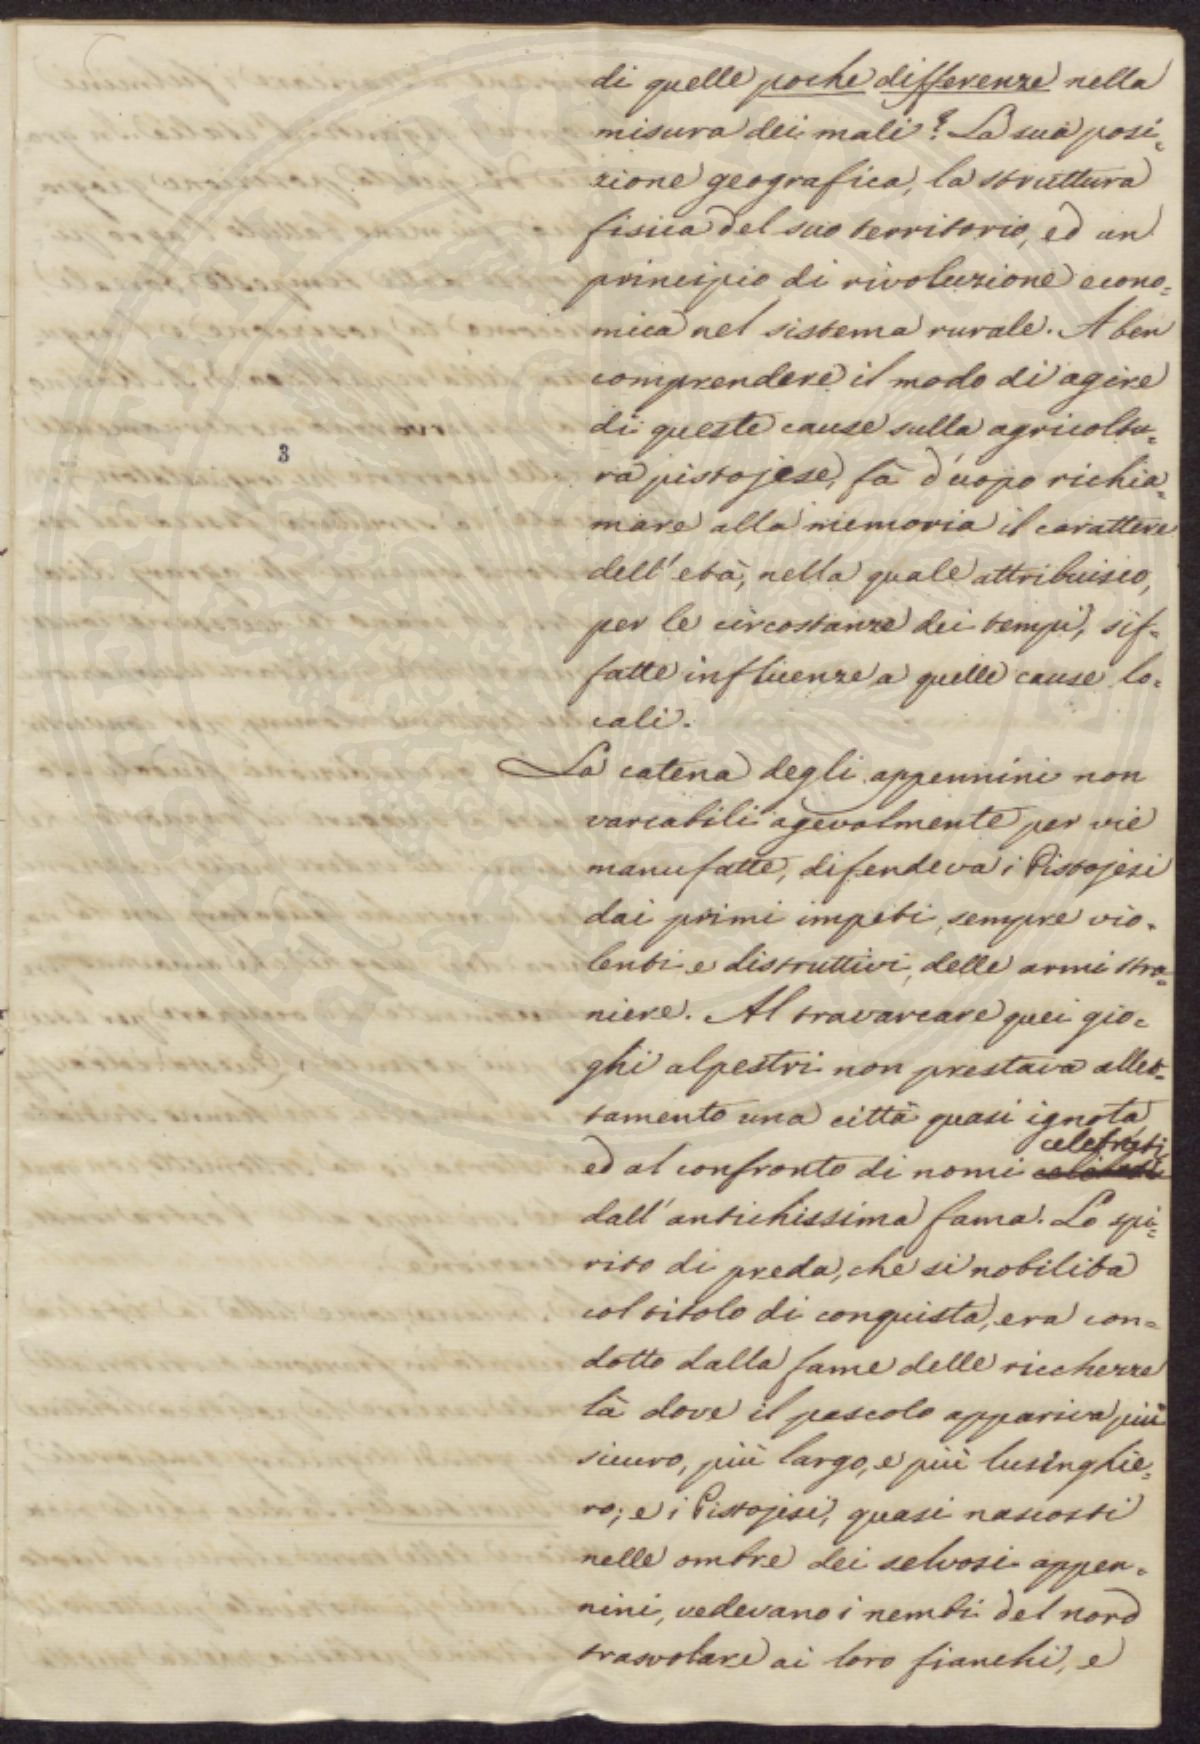 di quelle poche differenze nella
misura dei mali? La sua posi=
zione geografica, la struttura
fisica del suo territorio, ed un
principio di rivoluzione econo=
mica nel sistema rurale. A ben
comprendere il modo di agire
di queste cause sulla agricoltu=
ra pistojese, fà d'uopo richia=
mare alla memoria il carattere
dell'età, nella quale attribuisco,
per le circostanze dei tempi, sif=
fatte influenze a quelle cause lo=
cali.
La catena degli appennini non
varcabili agevolmente per vie
manufatte, difendeva i Pistojesi
dai primi impeti, sempre vio=
lenti e distruttivi, delle armi stra=
niere. Al travarcare quei gio=
ghi alpestri non prestava allet=
tamento una città quasi ignota
celebrati
ed al confronto di nomi
dall'antichissima fama. Lo spi=
rito di preda, che si nobilita
col titolo di conquista, era con=
dotto dalla fame delle ricchezze
là dove il pascolo appariva più
sicuro, più largo, e più lusinghie=
ro; e i Pistojesi, quasi nascosti
nelle ombre dei selvosi appen=
nini, vedevano i nembi del nord
trasvolare ai loro fianchi, e
3